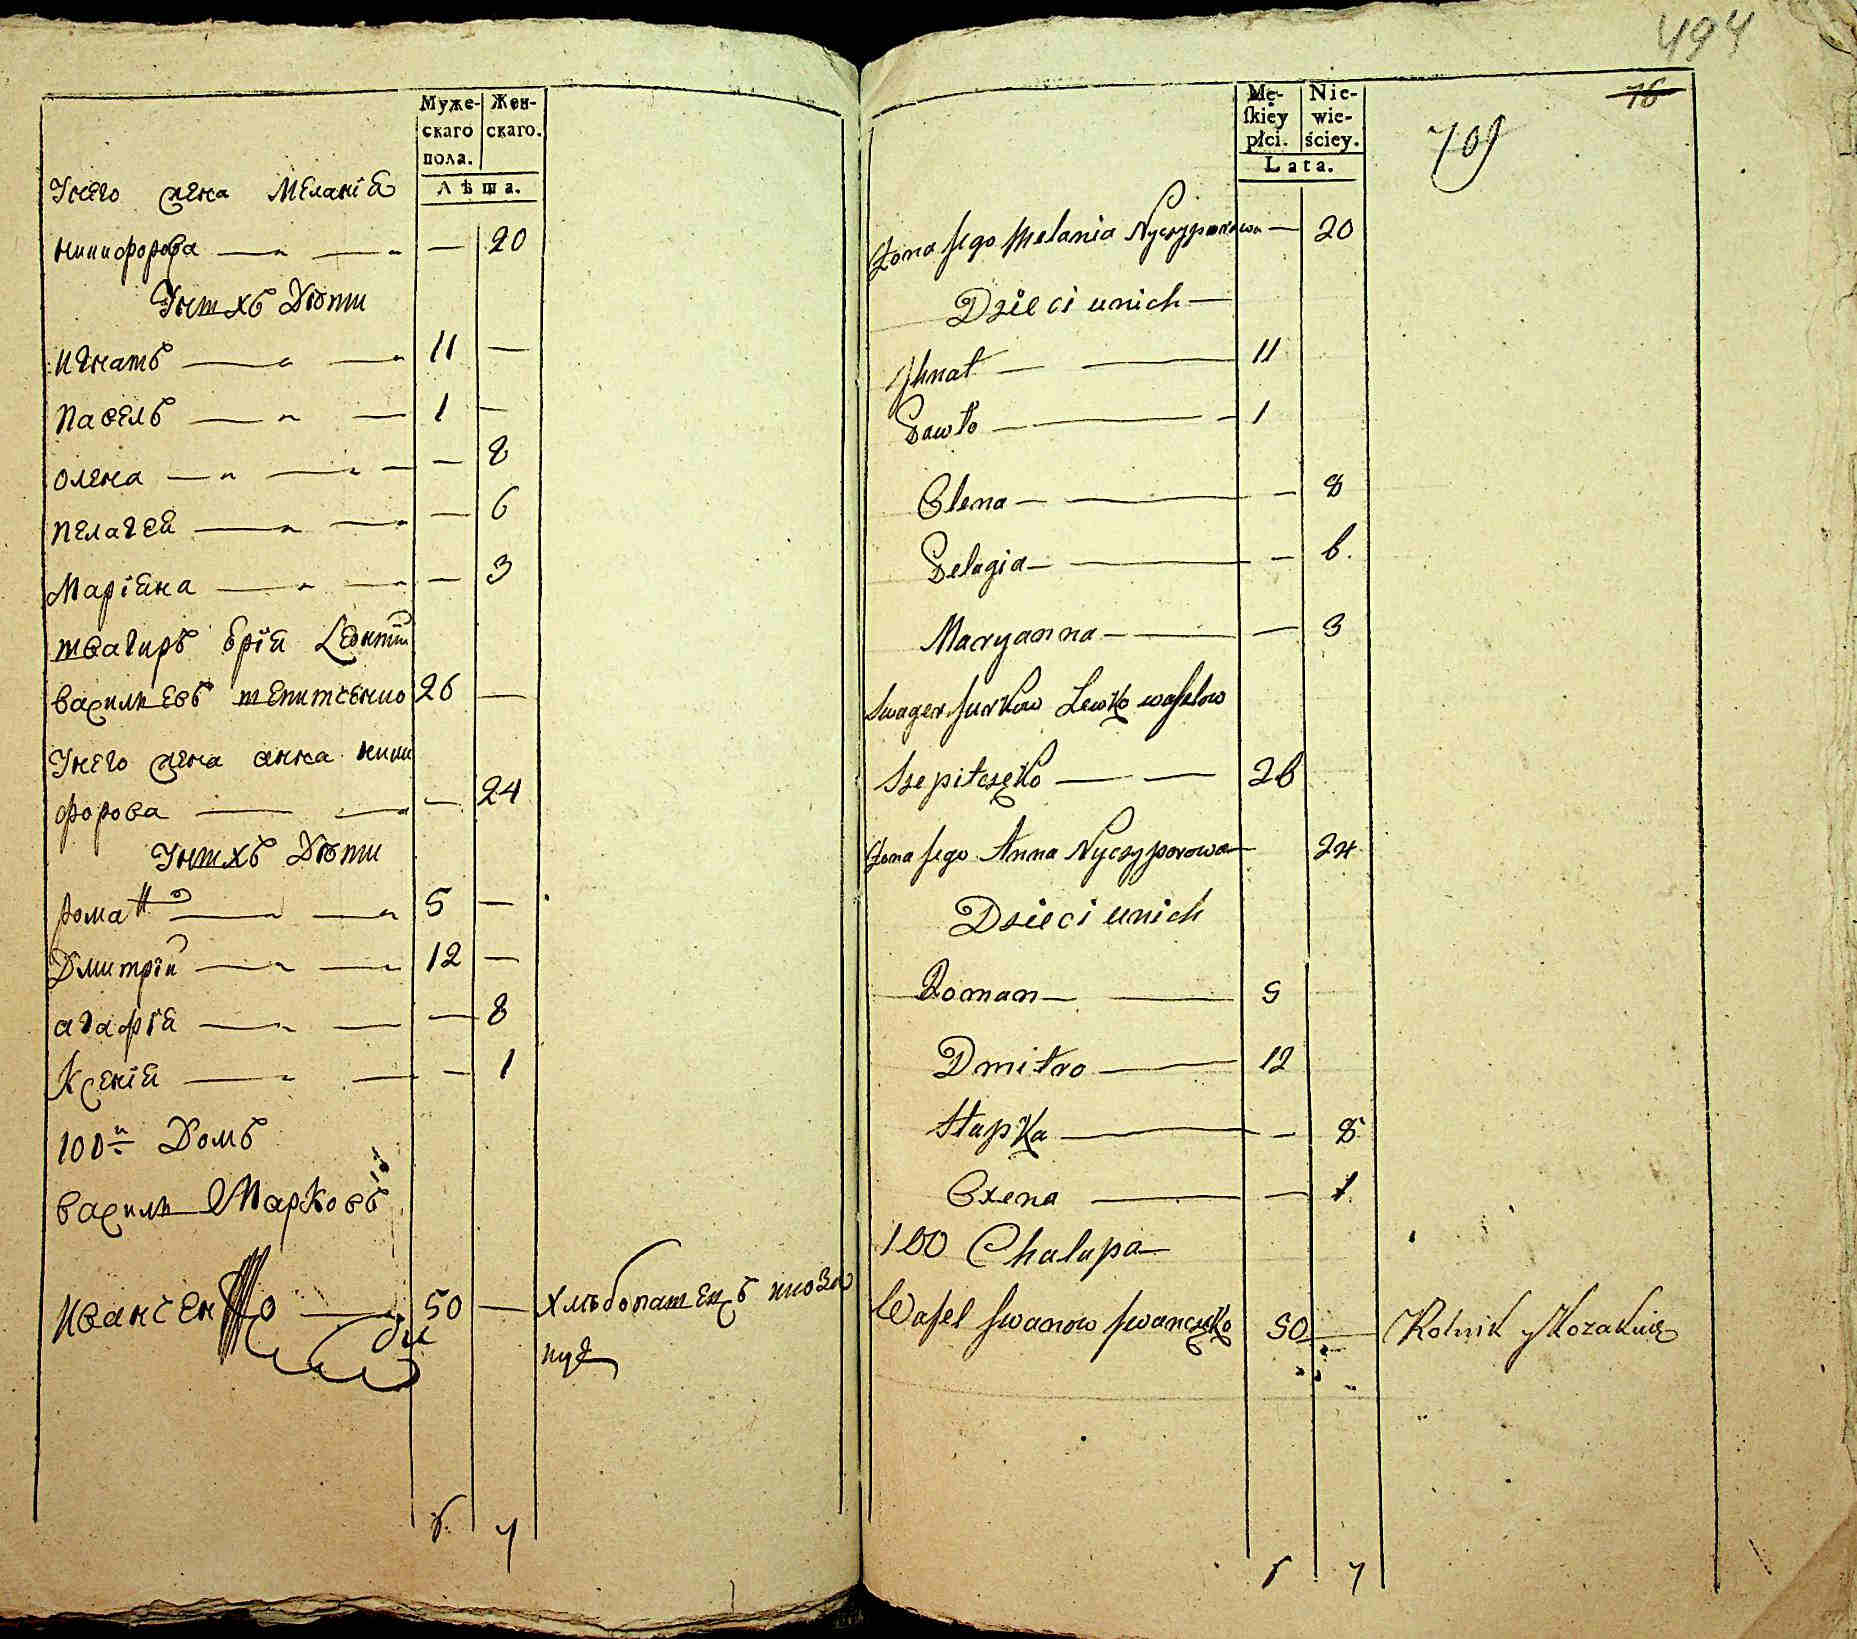 Муже- Жен-
скаго скаго.
пола.
Лѣта.
Унего жена Меланіѧ
никифорова — — — 20
Унихъ Дѣти
Игнатъ — — 11 —
Павелъ — — 1 —
Олена — — — 8
Пелагеѧ — — — 6
Маріѧна — — — 3
швагиръ
василиевъ 26 —
Унего жена анна ники
форова — — — 24
Унихъ Дѣти
Романъ — — 5 —
Дмитрій — — 12 —
агафіѧ — — — 8
Ксеніѧ — — — 1
100й Домъ
василь Марковъ
Иванченко — 50 — хлѣбопашецъ
6 7
494
76
Mę- Nie-
ſkiéy wie-
płci. ściey.
Lata.
Żona Jego Melania Nyczyporowa — 20
Dzieci unich —
Ihnat — — 11
Pawło — — 1
Olena — — — 8
Pelagia — — — 6.
Maryanna — — — 3
Szwager Jurkow Lewko wasylow
Szepitczęko — — 26
Żona Jego Anna Nyczyporowa — 24
Dzieci unich
Roman — — 5
Dmitro — 12
Hapka — — 8
Oxena — — 1.
100 Chalupa —
Wasyl Iwanow Iwanczęko 50 — Rolnik
7